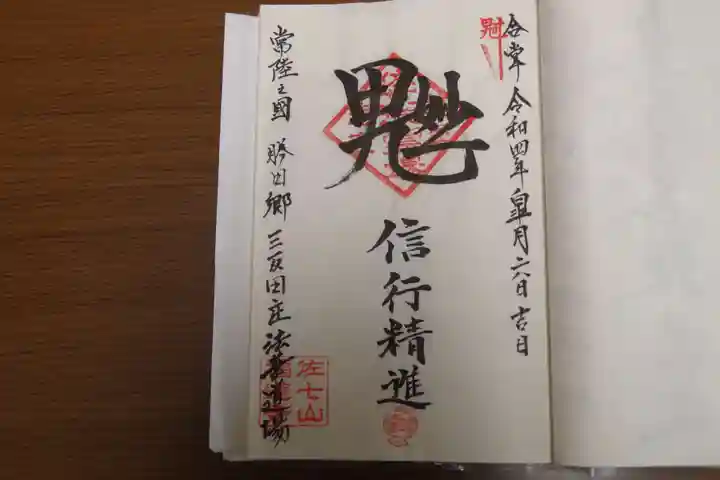 合掌 令和四年 皐月六日 吉日
信行精進
常陸之國 勝田郷 三反田庄 法華道場
佐七山